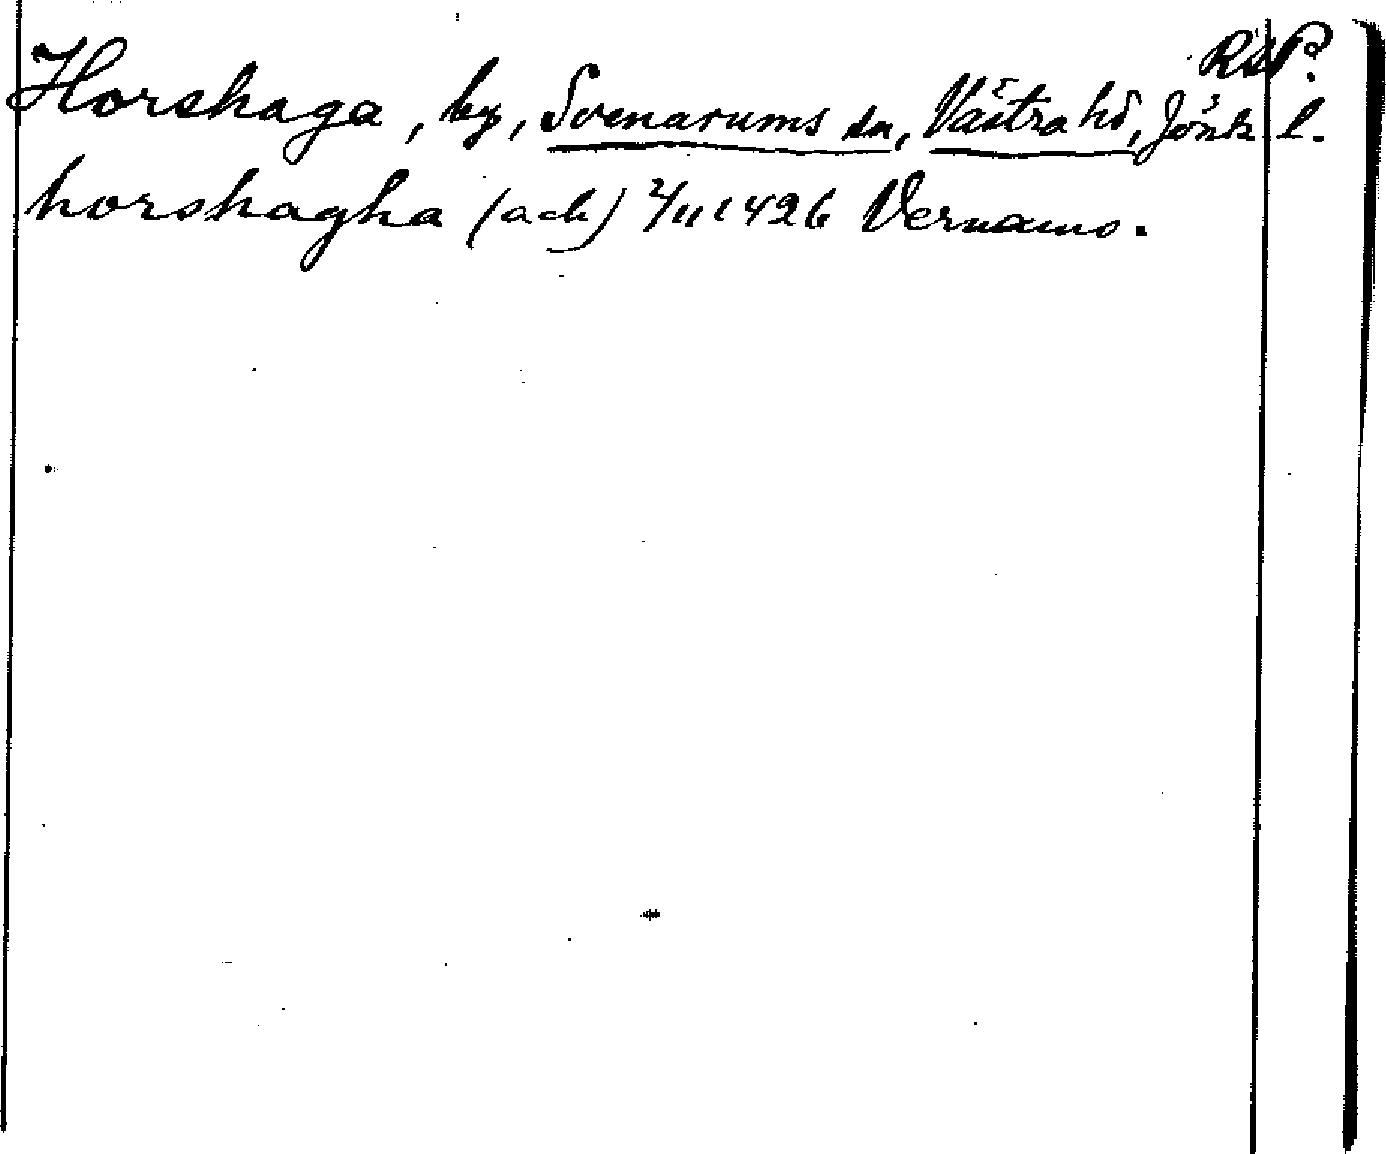 RAP.
Horshaga, by, Svenarums sn, Västra hd, Jönk l.
horshagha (ack) 2/11 1426 Vernamo.